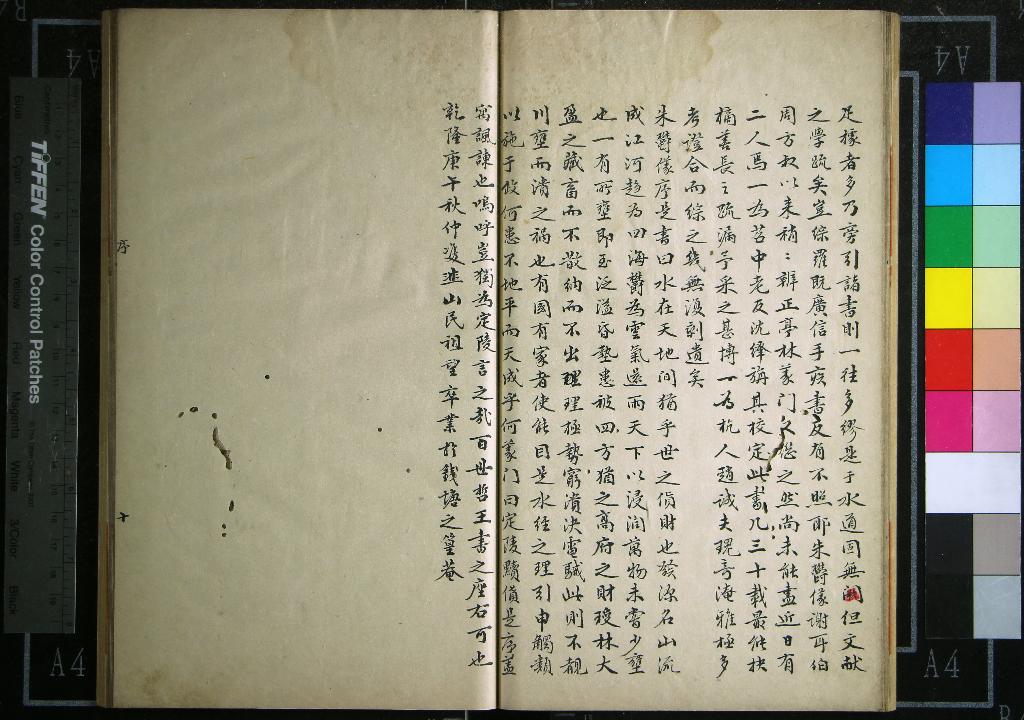 足據者多乃旁引諸書則一往多繆是于水道固無關但文献
之學疏矣豈綜羅既廣信手疾書反有不照耶朱鬱儀謝耳伯
周方叔以来稍〻辨正亭林篆门又㦤之然尚未能盡近日有
二人焉一為苕中老友沈繹旃其校定此書几三十載最能抉
摘善長之疏漏予采之甚博一为杭人趙誠夫瑰奇淹雅極多
考證合而綜之幾無復剩遺矣
朱鬱儀序是書曰水在天地间猶乎世之偩財也發源名山流
成江河趋為四海鬱為雲氣還雨天下以浸润萬物未嘗少壅
也一有所壅即至泛溢昏墊患被四方猶之髙府之財瓊林大
盈之藏畜而不散納而不出理理極勢窮潰决電駴此則不覩
川壅而潰之禍也有國有家者使能目是水經之理引申觸類
以施于政何患不地平而天成乎何篆门曰定陵黷偩是序盖
寫諷諫也嗚呼豈獨為定陵言之哉百世哲王書之座右可也
乾隆庚午秋仲雙韭山民祖望卒業於錢塘之篁菴
序
十
TIFFEN Color Control Patches
Centimetres
Blue
Cyan
Green
Yellow
Red
Magenta
White
3/Color
Black
A4
A4
A4
A4